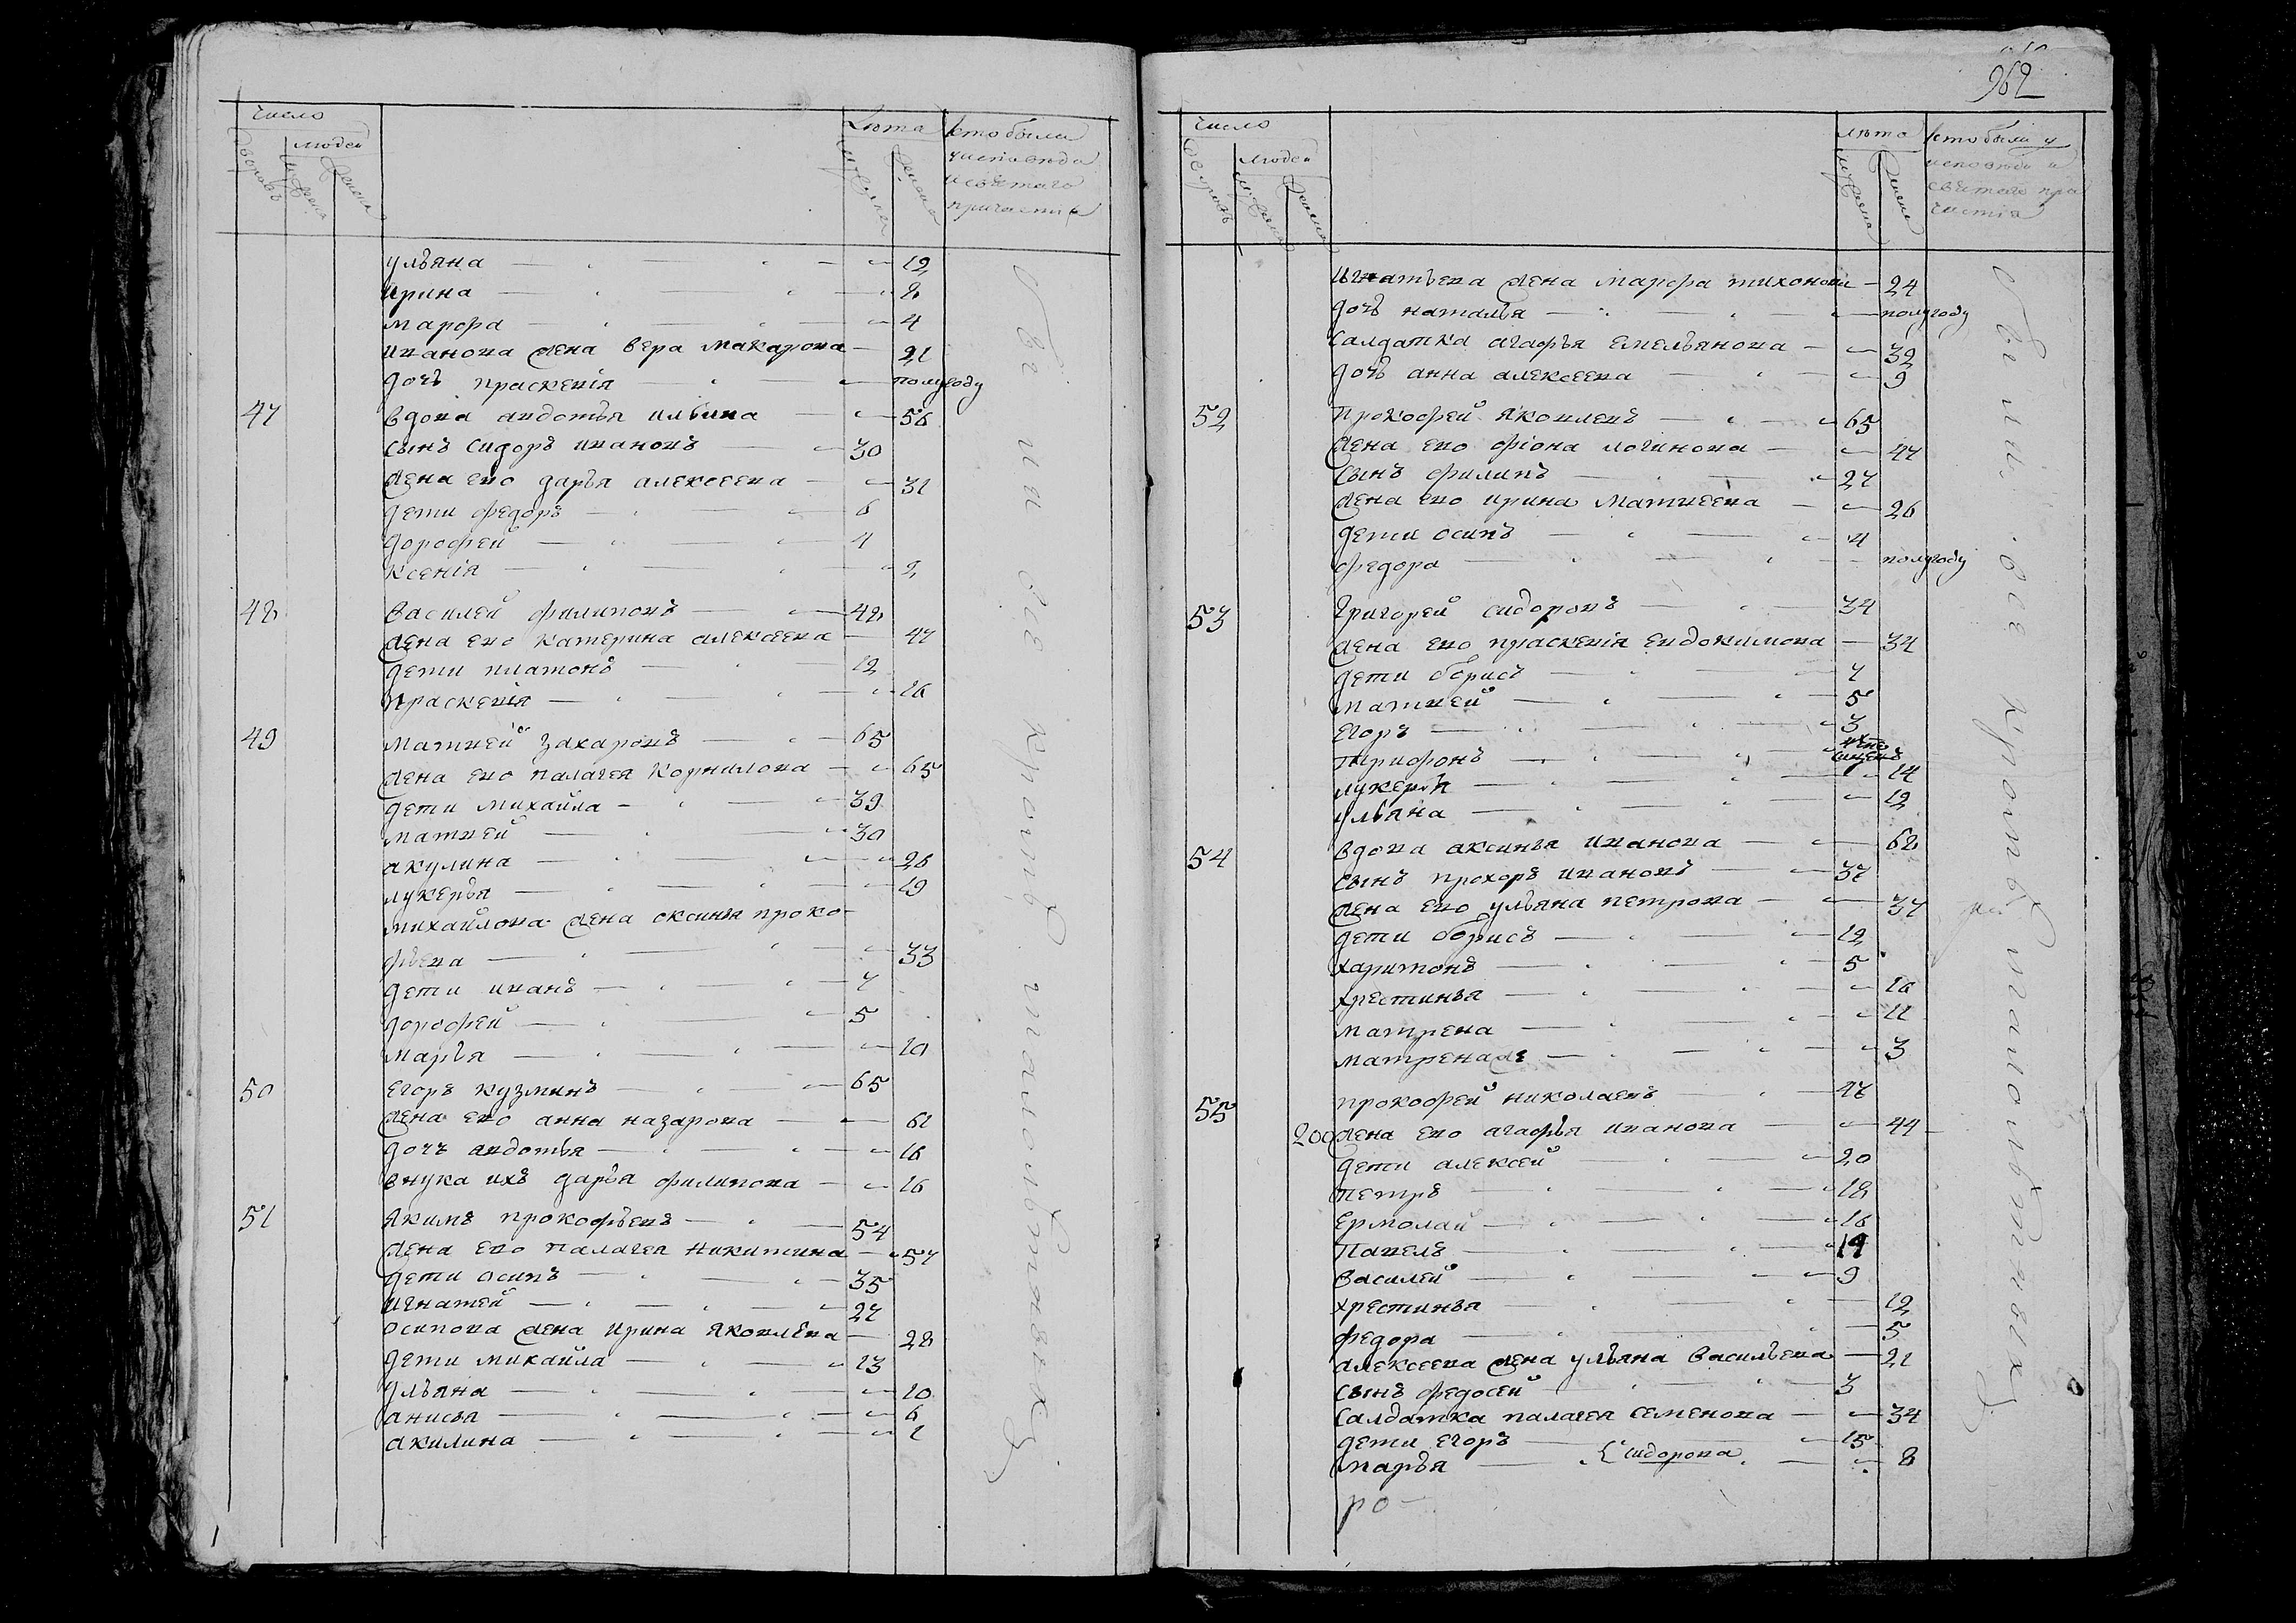 962
число
дворовъ
людей
мужеска
женска
Лета
мужска
женска
кто были
у исповеди
и святаго
причастия
ульяна 12
ирина 8
марфа 4
иванова жена вера макарова 21
дочь праскевія полугоду
47 вдова авдотья ильина 56
сынъ сидоръ ивановъ 30
жена ево дарья алексеева 31
дети федоръ 6
дорофей 4
ксенія 2
48 василей филиповъ 48
жена ево катерина алексеева 47
дети платонъ 12
праскевія 16
49 матвей захаровъ 65
жена ево палагея корнилова 65
дети михайла 39
матвей 30
акулина 26
лукерья 19
михайлова жена оксинья проко-
фьева 33
дети иванъ 7
дорофей 5
марья 10
50 егоръ кузминъ 65
жена ево анна назарова 61
дочь авдотья 16
внука ихъ дарья филипова 16
51 якимъ прокофьевъ 54
жена ево палагея никитина 57
дети осипъ 35
игнатей 27
осипова жена ирина яковлева 28
дети михайла 13
ульяна 10
анисья 6
акилина 1
число
дворовъ
людей
мужеска
женска
лето
мужеска
женска
кто были у
исповеди и
святаго при
частія
игнатьева жена марфа тихонова 24
дочь наталья полугоду
салдатка агафья емельянова 32
дочь анна алексеева 9
52 прокофей яковлевъ 65
жена ево фіона логинова 47
сынъ филипъ 27
жена ево ирина матвеева 26
дети осипъ 4
федора полугоду
53 григорей сидоровъ 34
жена ево праскевія евдокимова 34
дети борисъ 7
матвей 5
егоръ 3
трифонъ
лукерья 14
ульяна 12
54 вдова аксинья иванова 68
сынъ прохоръ ивановъ 37
жена ево ульяна петрова 37
дети борисъ 12
харитонъ 5
хрестинья 16
матрена 11
матрена же 3
55 прокофей николаевъ 47
200 жена ево агафья иванова 44
дети алексей 20
петръ 18
ермолай 16
павелъ 14
василей 9
хрестинья 12
федора 5
алексеева жена ульяна васильева 21
сынъ федосей 3
салдатка палагея семенова 34
дети егоръ 15
марья Сидорова 8
ро-